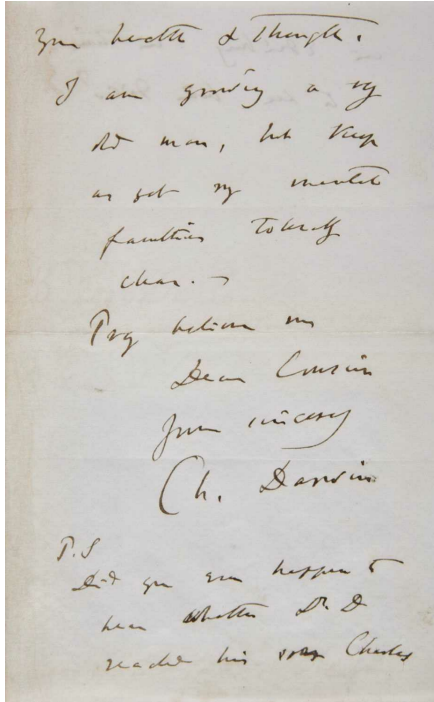 Your health & strength.
I am growing a very
old man, but keep
as yet my mental
faculties tolerably
clear. —
Pray believe me
Dear Cousin
Yours sincerely
Ch. Darwin
P.S
Did you ever happen to
hear whether Dr. D
reached his Charles